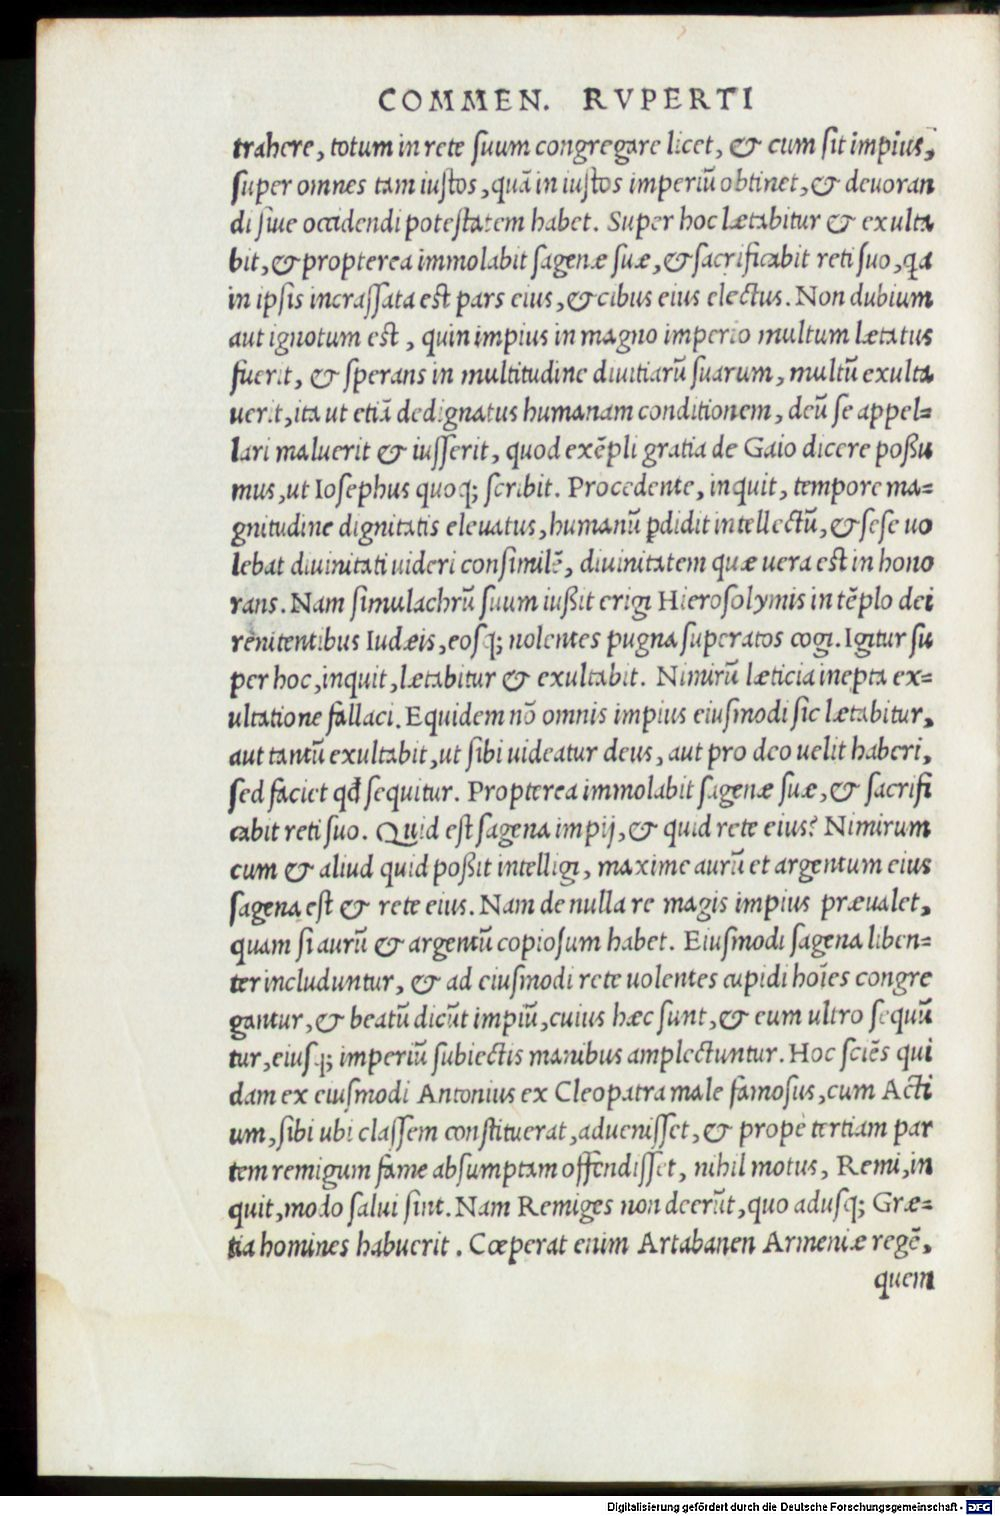 COMMEN. RVPERTI
trahere, totum in rete suum congregare licet, & cum sit impius,
super omnes tam iustos, quā in iustos imperiū obtinet, & deuoran
di siue occidendi potestatem habet. Super hoc lætabitur & exulta
bit, & propterea immolabit sagenæ suæ, & sacrificabit reti suo, qa
in ipsis incrassata est pars eius, & cibus eius electus. Non dubium
aut ignotum est, quin impius in magno imperio multum lætatus
fuerit, & sperans in multitudine diuitiarū suarum, multū exulta
uerit, ita ut etiā dedignatus humanam conditionem, deū se appel=
lari maluerit & iusserit, quod exēpli gratia de Gaio dicere possu
mus, ut Iosephus quoq; scribit. Procedente, inquit, tempore ma=
gnitudine dignitatis eleuatus, humanū ꝑdidit intellectū, & sese uo
lebat diuinitati uideri consimilē, diuinitatem quæ uera est in hono
rans. Nam simulachrū suum iußit erigi Hierosolymis in tēplo dei
renitentibus Iudæis, eosq; nolentes pugna superatos cogi. Igitur su
per hoc, inquit, lætabitur & exultabit. Nimirū læticia inepta ex=
ultatione fallaci. Equidem nō omnis impius eiusmodi sic lætabitur,
aut tantū exultabit, ut sibi uideatur deus, aut pro deo uelit haberi,
sed faciet qđ sequitur. Propterea immolabit sagenæ suæ, & sacrifi
cabit reti suo. Quid est sagena impij, & quid rete eius? Nimirum
cum & aliud quid poßit intelligi, maxime aurū et argentum eius
sagena est & rete eius. Nam de nulla re magis impius præualet,
quam si aurū & argentū copiosum habet. Eiusmodi sagena liben=
ter includuntur, & ad eiusmodi rete uolentes cupidi hoīes congre
gantur, & beatū dicūt impiū, cuius hæc sunt, & eum ultro sequū
tur, eiusq; imperiū subiectis manibus amplectuntur. Hoc sciēs qui
dam ex eiusmodi Antonius ex Cleopatra male famosus, cum Acti
um, sibi ubi classem constituerat, aduenisset, & propè tertiam par
tem remigum fame absumptam offendisset, nihil motus, Remi, in
quit, modo salui sint. Nam Remiges non deerūt, quo adusq; Græ=
tia homines habuerit. Cœperat enim Artabanen Armeniæ regē,
quem
Digitalisierung gefördert durch die Deutsche Forschungsgemeinschaft - DFG